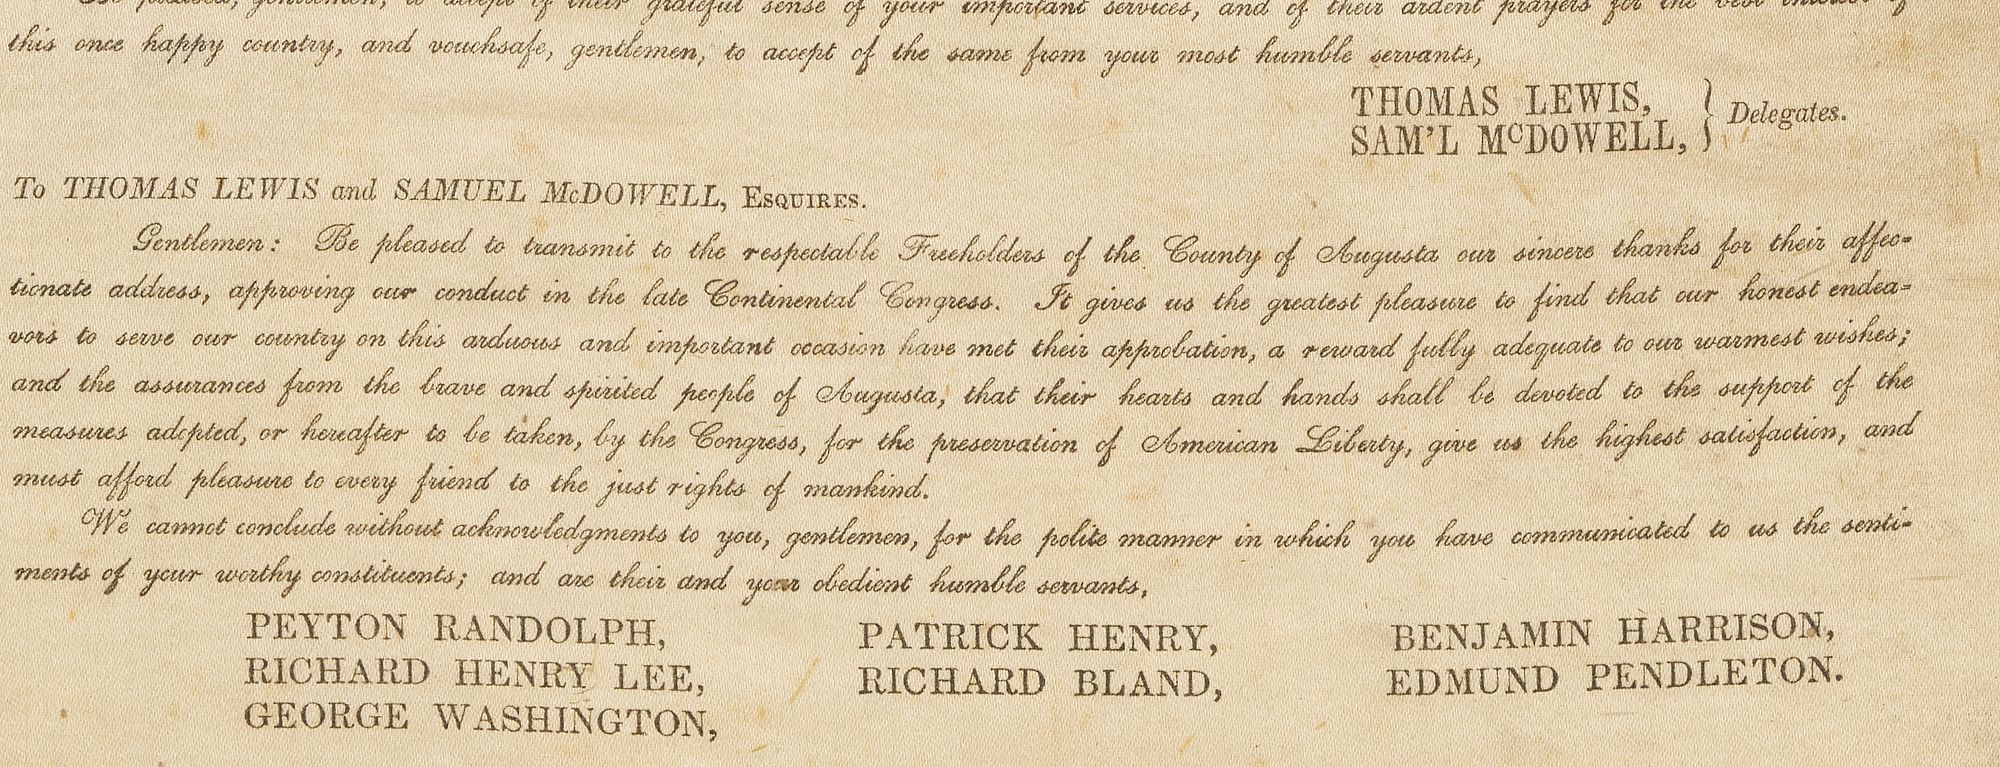 Be pleased, gentlemen, to accept of their grateful sense of your important services, and of their ardent prayers for the best interest of
this once happy country, and vouchsafe, gentlemen, to accept of the same from your most humble servants,
THOMAS LEWIS,
SAM'L McDOWELL, } Delegates.
To THOMAS LEWIS and SAMUEL McDOWELL, ESQUIRES.
Gentlemen: Be pleased to transmit to the respectable Freeholders of the County of Augusta our sincere thanks for their affec-
tionate address, approving our conduct in the late Continental Congress. It gives us the greatest pleasure to find that our honest endea-
vors to serve our country on this arduous and important occasion have met their approbation, a reward fully adequate to our warmest wishes;
and the assurances from the brave and spirited people of Augusta, that their hearts and hands shall be devoted to the support of the
measures adopted, or hereafter to be taken, by the Congress, for the preservation of American Liberty, give us the highest satisfaction, and
must afford pleasure to every friend to the just rights of mankind.
We cannot conclude without acknowledgments to you, gentlemen, for the polite manner in which you have communicated to us the senti-
ments of your worthy constituents; and are their and your obedient humble servants,
PEYTON RANDOLPH, PATRICK HENRY, BENJAMIN HARRISON,
RICHARD HENRY LEE, RICHARD BLAND, EDMUND PENDLETON.
GEORGE WASHINGTON,